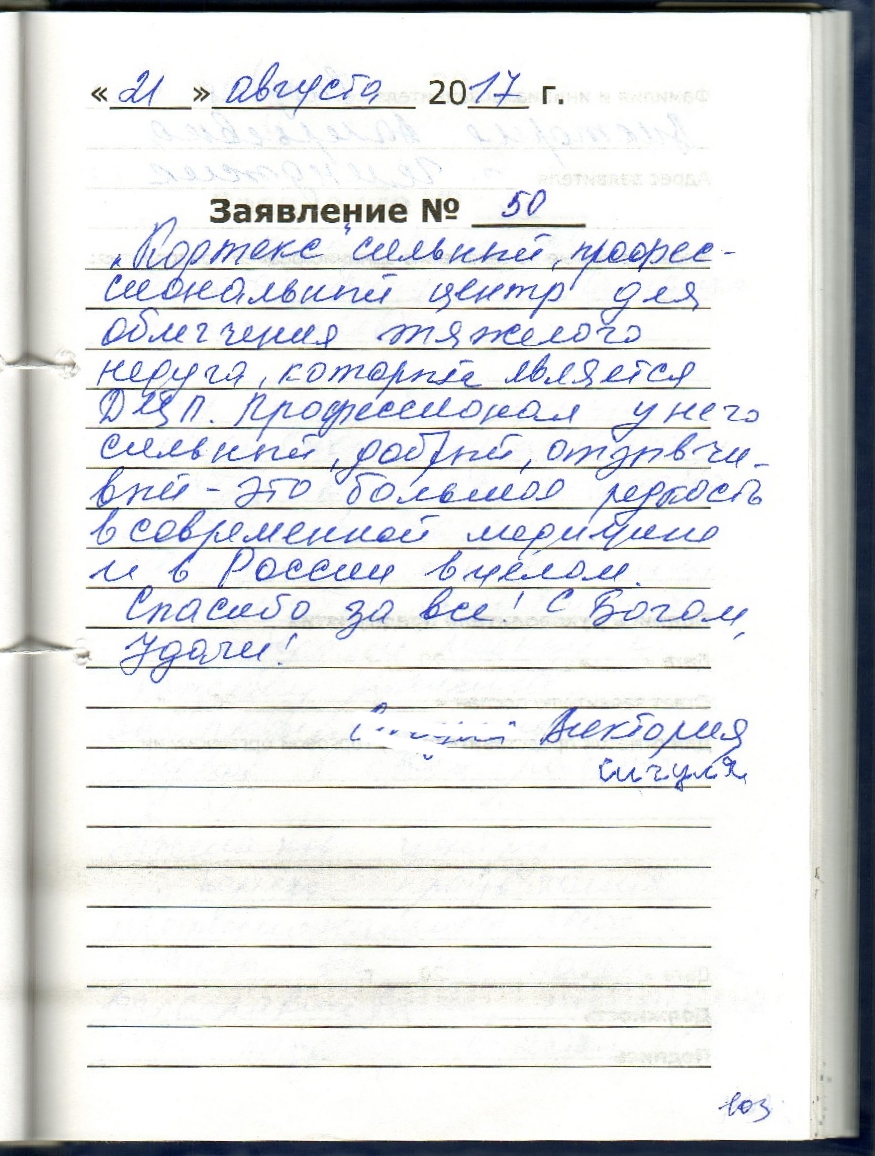 « 21 » августа 2017 г.
Заявление № 50
„Кортекс" сильный, профес-
сиональный центр для
облегчения тяжелого
недуга, который является
ДЦП. Профессионал у него
сильный, добрый, отзывчи-
вый - это большая редкость
в современной медицине
и в России в целом.
Спасибо за все! С Богом,
Удачи!
Виктория
103